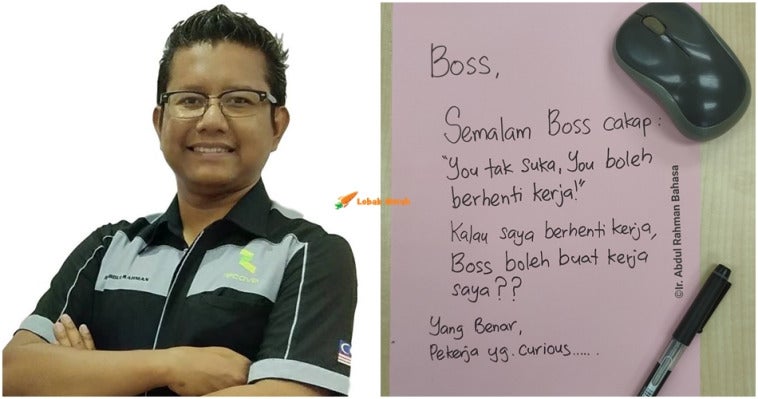 Lobak Merah
recover
Boss,
Semalam Boss cakap:
"You tak suka, You boleh
berhenti kerja!"
Kalau saya berhenti kerja,
Boss boleh buat kerja
saya??
Yang Benar,
Pekerja yg. curious......
©Ir. Abdul Rahman Bahasa